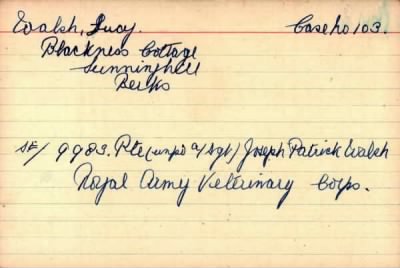 Walsh, Lucy. Case No 103.
Blackness Cottage
Sunninghill
Berks
SE/9983. Pte (unpd a/Sgt) Joseph Patrick Walsh
Royal Army Veterinary Corps.